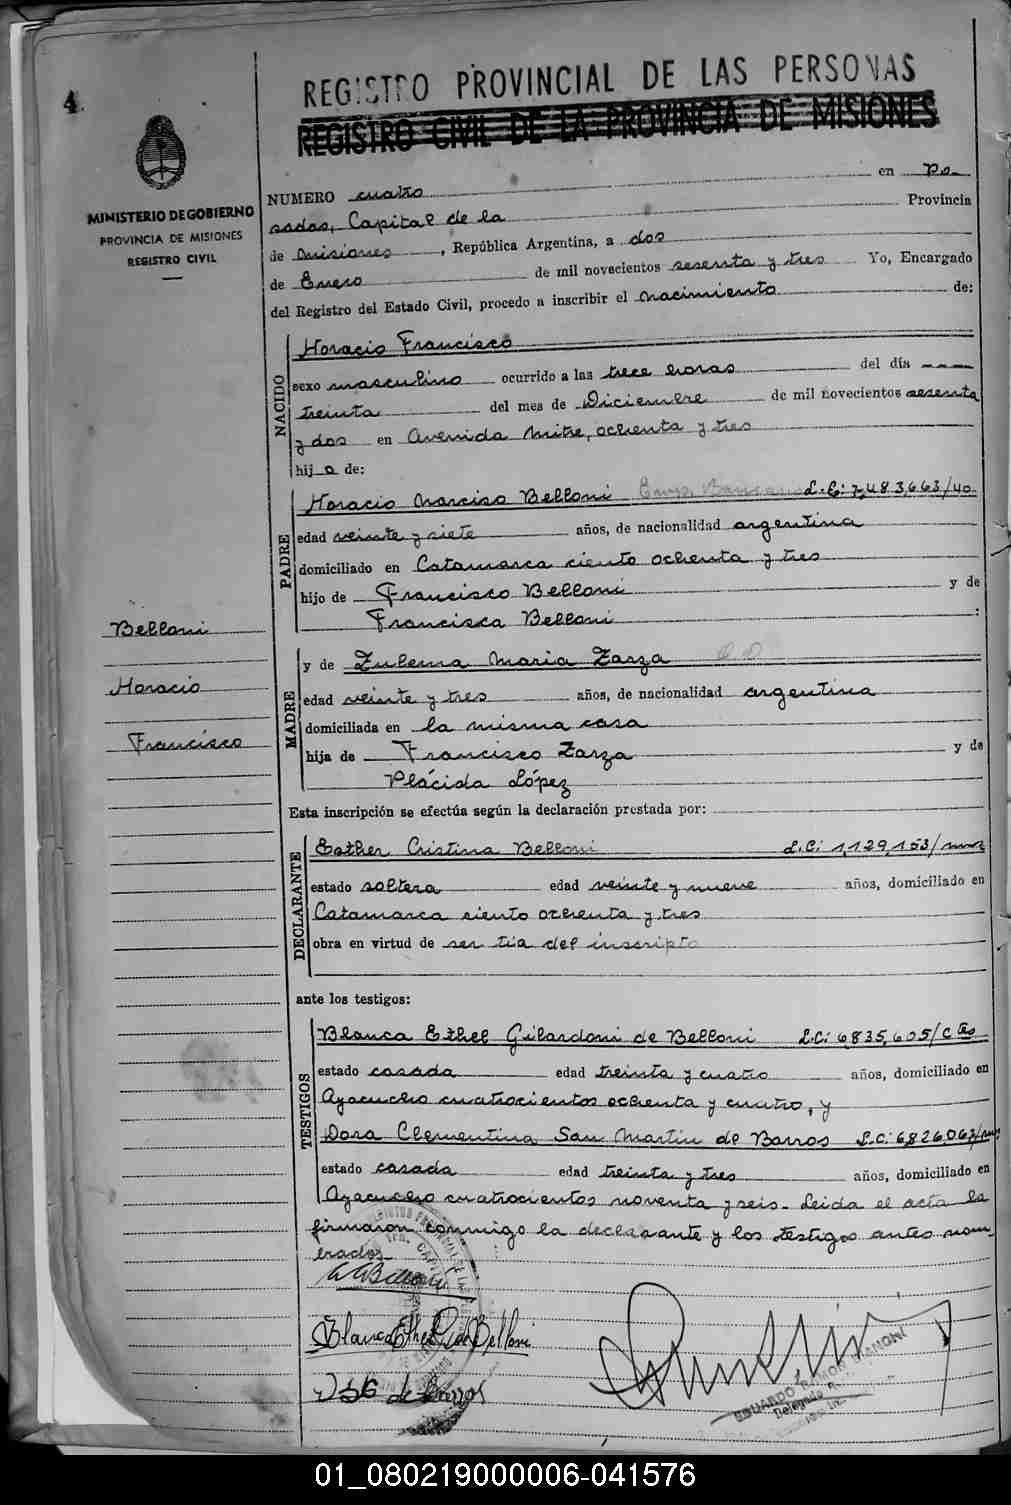 4.
REGISTRO PROVINCIAL DE LAS PERSONAS
REGISTRO CIVIL DE LA PROVINCIA DE MISIONES
MINISTERIO DE GOBIERNO
PROVINCIA DE MISIONES
REGISTRO CIVIL
NUMERO cuatro en Po-
sadas, Capital de la Provincia
de Misiones, República Argentina, a dos
de Enero de mil novecientos sesenta y tres Yo, Encargado
del Registro del Estado Civil, procedo a inscribir el nacimiento de:
NACIDO
Horacio Francisco
sexo masculino ocurrido a las trece horas del día ----
treinta del mes de Diciembre de mil novecientos sesenta
y dos en Avenida Mitre, ochenta y tres
hij o de:
PADRE
Horacio Narciso Belloni L.E: 7,483,663/40
edad veinte y siete años, de nacionalidad argentina
domiciliado en Catamarca ciento ochenta y tres
hijo de Francisco Belloni y de
Francisca Belloni :
Belloni
Horacio
Francisco
MADRE
y de Zulema Maria Zarza
edad veinte y tres años, de nacionalidad argentina
domiciliada en la misma casa
hija de Francisco Zarza y de
Plácida López
Esta inscripción se efectúa según la declaración prestada por:
DECLARANTE
Esther Cristina Belloni L.C: 1,129,153/mnes
estado soltera edad veinte y nueve años, domiciliado en
Catamarca ciento ochenta y tres
obra en virtud de ser tia del inscripto
ante los testigos:
TESTIGOS
Blanca Ethel Gilardoni de Belloni L.C: 6,835,605/Ctes
estado casada edad treinta y cuatro años, domiciliado en
Ayacucho cuatrocientos ochenta y cuatro, y
Dora Clementina San Martin de Barros L.C: 6,826,063/mns
estado casada edad treinta y tres años, domiciliado en
Ayacucho cuatrocientos noventa y seis. Leida el acta la
firmaron conmigo la declarante y los testigos antes nom-
brados.
Blanca Ethel G de Belloni
de Barros
EDUARDO RAMON GIANONI
Delegado
01_080219000006-041576